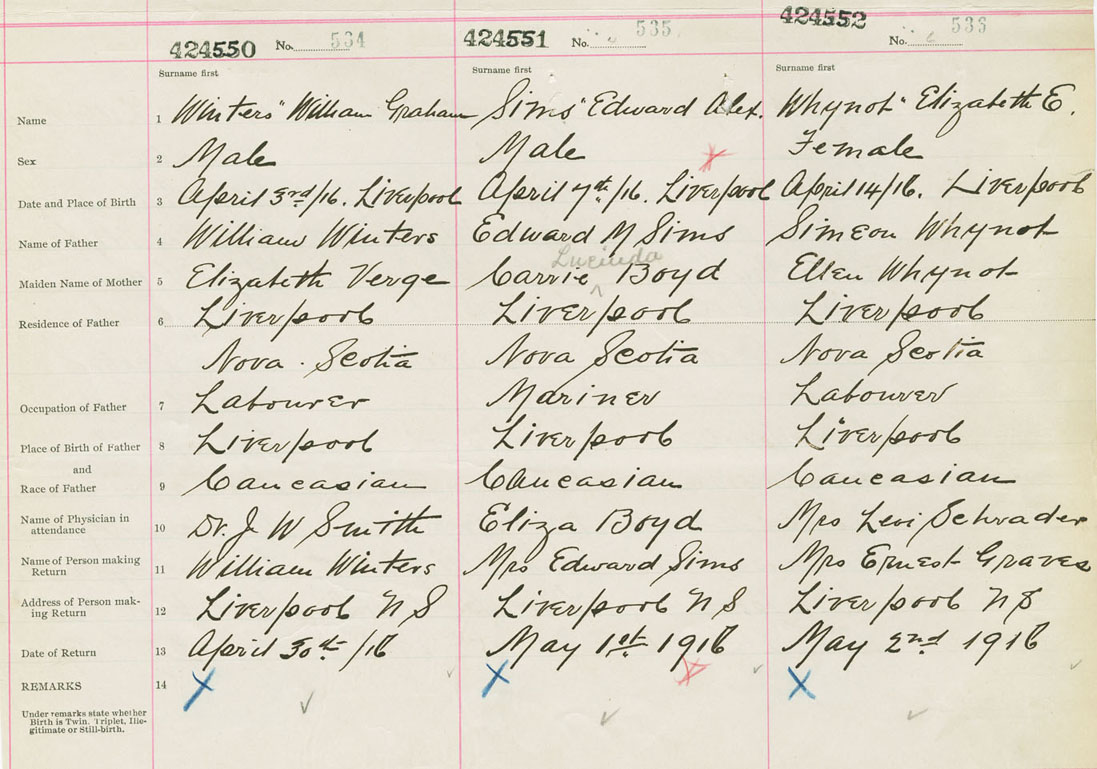 424550 No. 534 424551 No. 535 424552 No. 533
Surname first Surname first Surname first
Name 1 Winters" William Graham Sims" Edward Alex. Whynot" Elizabeth E.
Sex 2 Male Male Female
Date and Place of Birth 3 April 3rd/16. Liverpool April 7th/16. Liverpool April 14/16. Liverpool
Name of Father 4 William Winters Edward M Sims Simeon Whynot
Lucinda
Maiden Name of Mother 5 Elizabeth Verge Carrie ^ Boyd Ellen Whynot
Residence of Father 6 Liverpool Liverpool Liverpool
Nova Scotia Nova Scotia Nova Scotia
Occupation of Father 7 Labourer Mariner Labourer
Place of Birth of Father 8 Liverpool Liverpool Liverpool
and
Race of Father 9 Caucasian Caucasian Caucasian
Name of Physician in
attendance 10 Dr. J W Smith Eliza Boyd Mrs Levi Schrader
Name of Person making
Return 11 William Winters Mrs Edward Sims Mrs Ernest Graves
Address of Person mak-
ing Return 12 Liverpool N S Liverpool N S Liverpool N S
Date of Return 13 April 30th/16 May 1st 1916 May 2nd 1916
REMARKS 14 X X X
Under remarks state whether
Birth is Twin, Triplet, Ille-
gitimate or Still-birth.